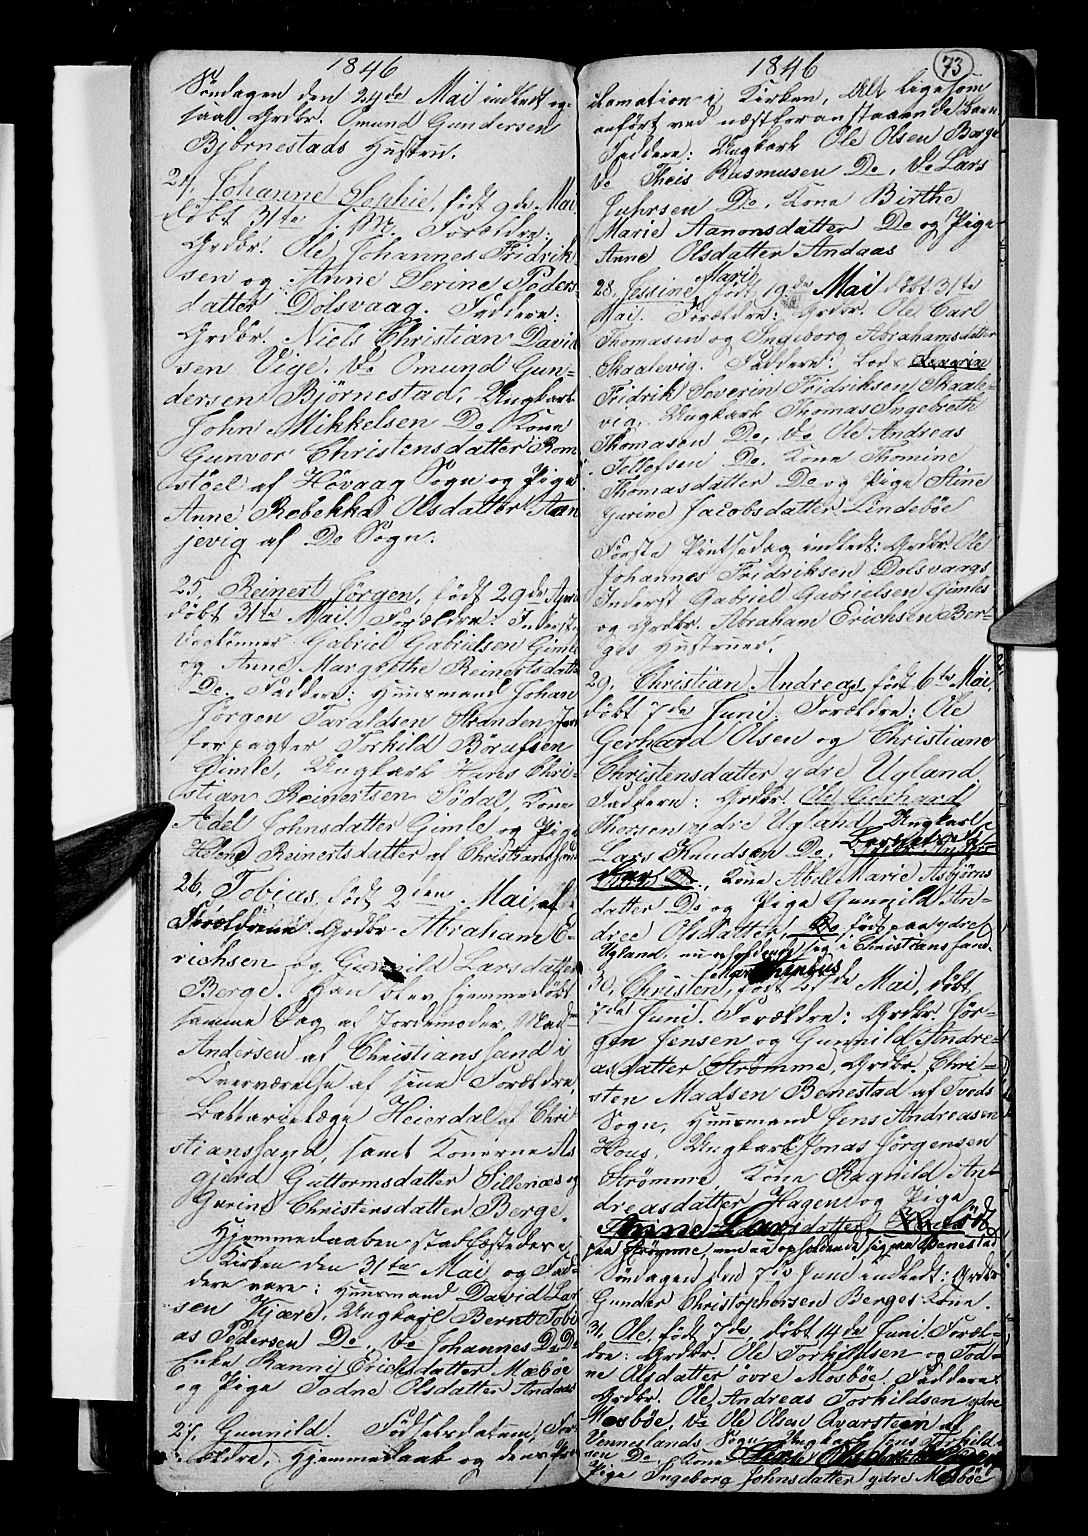 1846
Søndagen den 24de Mai indledt og-
saa Grdbr. Omund Gundersen
Bjørnestads Hustru.
24, Johanne Sophie, født 9de Mai,
døbt 31te s. M. Forældre:
Grdbr. Ole Johannes Fridrik-
sen og Anne Serine Peders-
datter Dolsvaag. Faddere:
Grdbr. Niels Christian David
sen Vige. Do Omund Gun-
dersen Bjørnestad, Ungkarl
John Mikkelsen Do Kone
Gunvor Christensdatter Rom
støel af Høvaag Sogn og Pige
Anne Rebekka Olsdatter Aan
jevig af Do Sogn.
25, Reinert Jørgen, født 29de April
døbt 31te Mai. Forældre: Inderst
Gabriel Gabrielsen Gimle
og Anne Margrethe Reinertsdatt
Do. Faddere: Huusmand Johan
Jørgen Taraldsen Stranden,
forpagter Torkild Børufsen
Gimle, Ungkarl Hans Chri-
stian Reinertsen Sødal, Kone
Adel Johnsdatter Gimle og Pige
Helene Reinertsdatter af Christianssand
26, Tobias, født 2den Mai, af
Forældrene Grdbr Abraham E-
richsen og Gunnild Larsdatter
Berge. Han blev hjemmedøbt
samme Dag af Jordemoder Mad
Andersen af Christianssand i
Overværelse af sine Forældre,
Battarielæge Heierdal af Chri
stianssand, samt Konerne As
gjerd Guttormsdatter Sillenæs og
Gurine Christensdatter Berge.
Hjemmedaaben stadfæstedes i
Kirken den 31te Mai og Fad-
dere vare: Huusmand David Lar
sen Kjære, Ungkarl Bernt Tobi
as Pedersen Do, Do Johannes Do Do
Enke Ranni Erichsdatter Mæbøe
og Pige Todne Olsdatter Andaas
27, Gunnild. Fødselsdatum, For
ældre, Hjemmedaab og dens Pro
73
1846
clamation i Kirken, Alt ligesom
anført ved næstforanstaaende Barn.
Faddere: Ungkarl Ole Olsen Berge
Do Theis Rasmusen Do, Do Lars
Juhrsen Do, Kone Birthe
Marie Aanonsdatter Do og Pige
Anne Olsdatter Andaas
28, Jessine Marie, født 19de Mai døbt 31te
Mai. Forældre: Grdbr. Ole Carl
Thomasen og Ingeborg Abrahamsdatter
Skaalevig. Faddere: Lods
Fridrik Severin Fridriksen Skaale-
vig, Ungkarl Thomas Ingebreth
Thomasen Do, Do Ole Andreas
Tellefsen Do. Kone Thomine
Thomasdatter Do og Pige Stine
Gurine Jacobsdatter Lindebøe
Første Pintsedag indledt: Grdbr. Ole
Johannes Fridriksen Dolsvaags
Inderst Gabriel Gabrielsen Gimles
og Grdbr. Abraham Erichsen Ber-
ges Hustruer.
29, Christian Andreas, født 6te Mai,
døbt 7de Juni. Forældre: Ole
Gerhard Olsen og Christiane
Christensdatter ydre Ugland.
Faddere: Grdbr. Ole Gerhard
Thorsen ydre Ugland, Ungkarl
Lars Knudsen Do,
Kone Abell Marie Asbjørns
datter Do og Pige Gunnild An-
dree Olsdatter, Do født paa ydre
Ugland, nu opholdende sig i Christianssand.
30, Christen Mathinius, født 21de Mai, døbt
7de Juni. Forældre: Grdbr. Jør-
gen Jensen og Gunnild Andre-
asdatter Strømme, Grdbr. Chri-
sten Madsen Benestad af Tveds
Sogn, Huusmand Jens Andreasen
Hous, Ungkarl Jonas Jørgensen
Strømme, Kone Ragnild An-
dreasdatter Hagen og Pige
Anne Larsdatter, født
paa Strømme, men nu opholdende sig paa Benestad
Søndagen den 7de Juni indledt: Grdbr
Gunder Christophersen Berges Kone.
31, Ole, født 7de, døbt 14de Juni. Foræl-
dre: Grdbr. Ole Torkildsen og Tod-
ne Olsdatter øvre Mosbøe. Faddere:
Grdbr. Ole Andreas Torkildsen ydre
Mosbøe, Do Ole Olsen Qvarsteen af
Vennelands Sogn, Ungkar Jens Torkild-
sen Do Kone
Pige Ingeborg Johnsdatter ydre Mosbøe